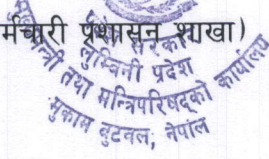 र्मचारी प्रशासन शाखा)
लुम्बिनी प्रदेश
मुख्यमन्त्री तथा मन्त्रिपरिषद्को कार्यालय
मुकाम बुटवल, नेपाल